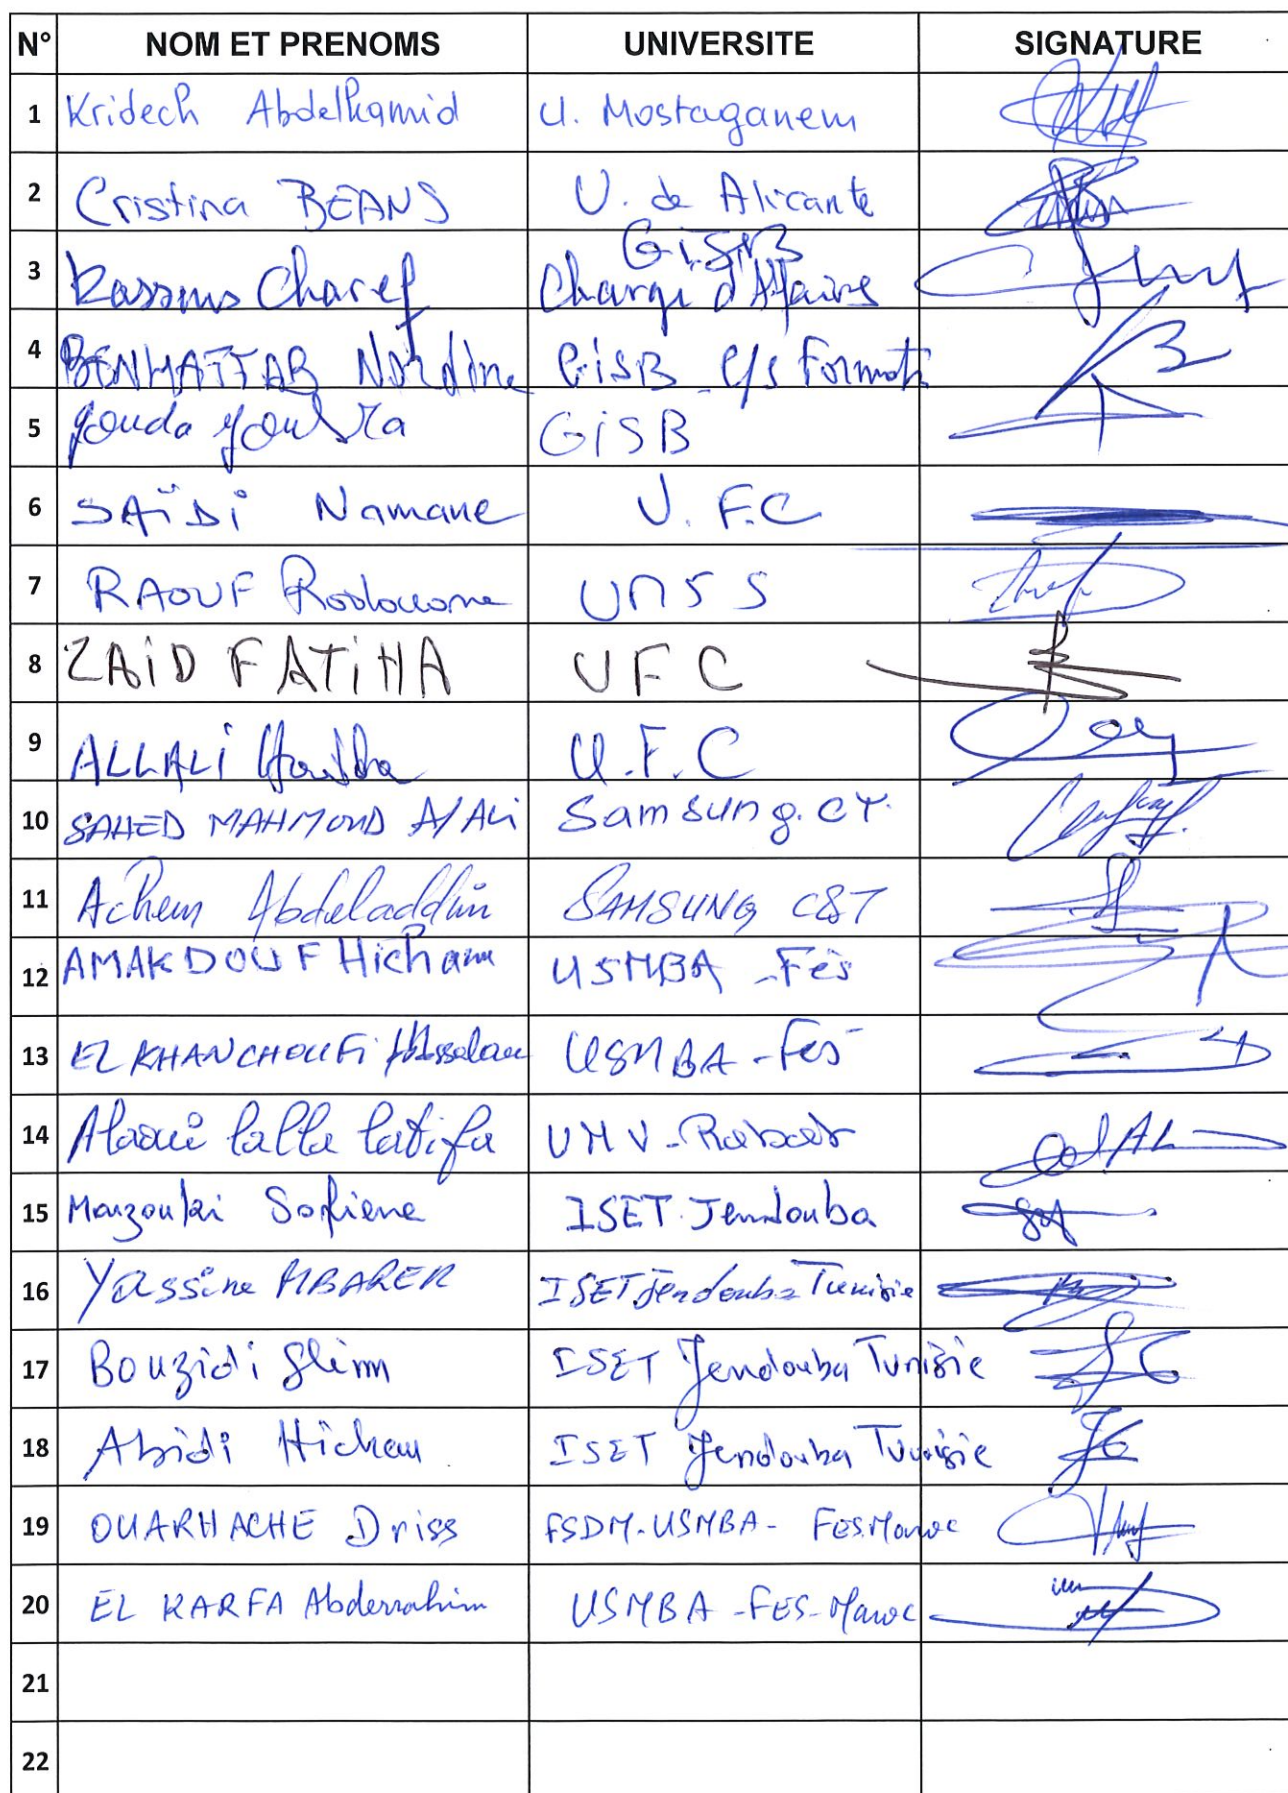 N° NOM ET PRENOMS UNIVERSITE SIGNATURE
1 Kridech Abdelhamid U. Mostaganem
2 Cristina BEANS U. de Alicante
GiSB
3 Charef Chargé d'Affaire
4 BENHATTAB Nordine GiSB
5 GiSB
6 SAÏDi Namane U. F.C
7 RAOUF
8 ZAiD FATiHA UFC
9 ALLALi U.F.C
10 SAHED MAHMOUD A/Ali Samsung. CT.
11 Achem SAMSUNG C&T
12 AMAKDOUF Hicham USMBA - Fès
13 EL KHANCHOUFi USMBA - Fès
14 Alaoui lalla latifa UMV - Rabat
15 Marzouki Sofiene ISET Jendouba
16 Yassine MBAREK ISET Jendouba Tunisie
17 Bouzidi Slim ISET Jendouba Tunisie
18 Abidi Hichem ISET Jendouba Tunisie
19 OUARHACHE Driss FSDM-USMBA- FES Maroc
20 EL KARFA Abderrahim USMBA - FES - Maroc
21
22